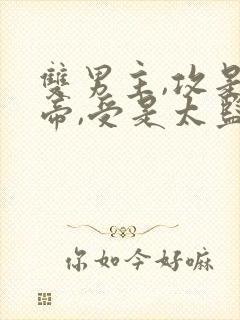 雙男主,攻是
帝,受是太監
你如今好嘛